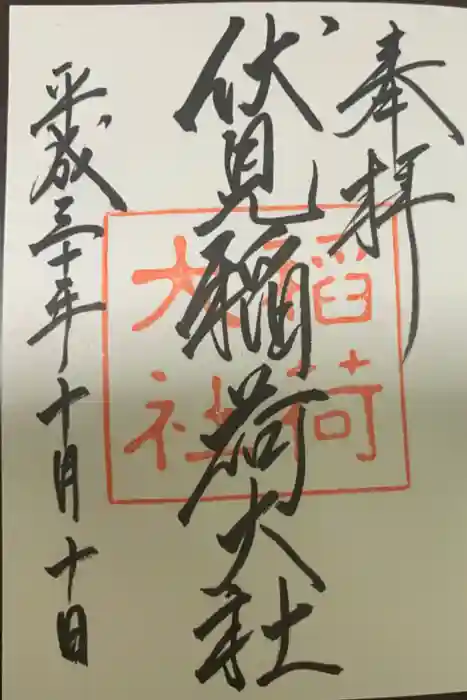 奉拝
伏見稲荷大社
稲荷
大社
平成三十年十月十日